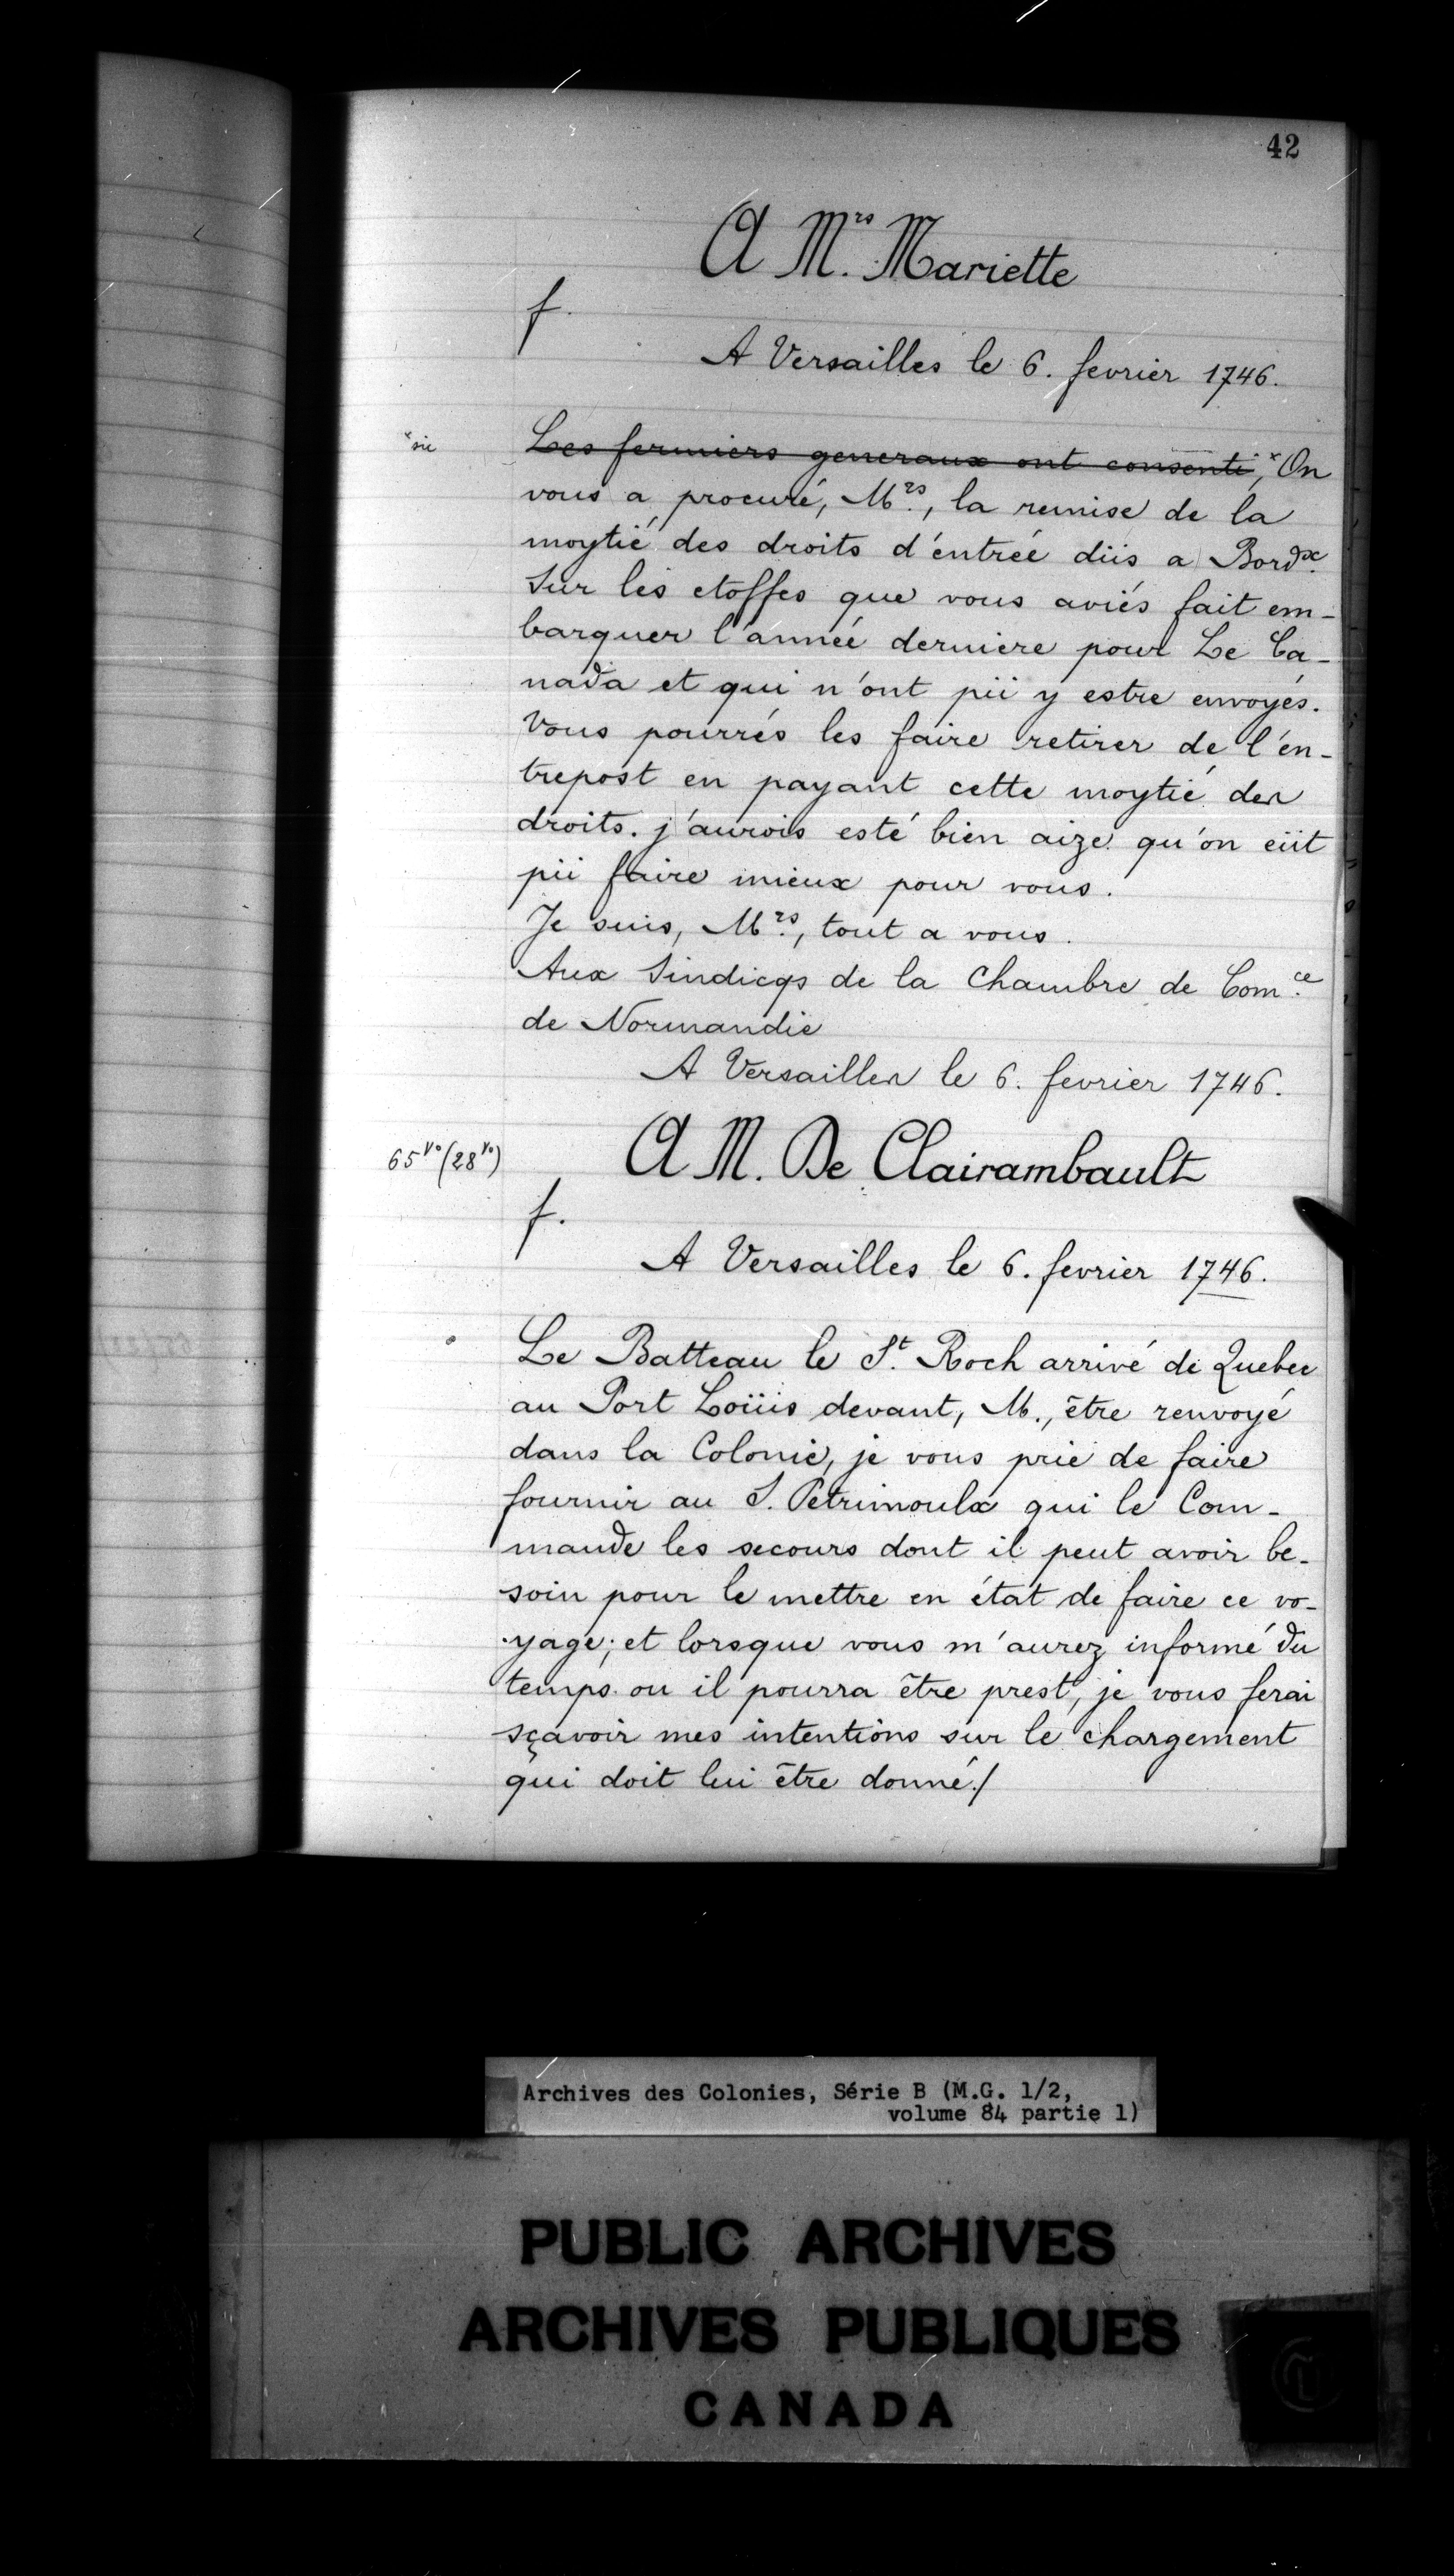 42
A M.rs Mariette
f.
A Versailles le 6. fevrier 1746.
x sic
Les fermiers generaux ont consenti, x On
vous a procuré, M.rs, la remise de la
moytié des droits d'entrée düs a Bord.x
Sur les etoffes que vous aviés fait em-
barquer l'année derniere pour Le Ca-
nada et qui n'ont pü y estre envoyés.
Vous pourrés les faire retirer de l'en-
trepost en payant cette moytié des
droits. j'aurois esté bien aize qu'on eüt
pü faire mieux pour vous.
Je suis, M.rs, tout a vous.
Aux Sindicqs de la Chambre de Com.ce
de Normandie
A Versailles le 6. fevrier 1746.
65 vo (28 vo)
A M. De Clairambault
f.
A Versailles le 6. fevrier 1746.
Le Batteau le St. Roch arrivé de Quebec
au Port Loüis devant, M., être renvoyé
dans la Colonie, je vous prie de faire
fournir au S. Petrimoulx qui le Com-
mande les secours dont il peut avoir be-
soin pour le mettre en état de faire ce vo-
yage; et lorsque vous m'aurez informé du
temps ou il pourra être prest, je vous ferai
sçavoir mes intentions sur le chargement
qui doit lui être donné./
Archives des Colonies, Série B (M.G. 1/2,
volume 84 partie 1)
PUBLIC ARCHIVES
ARCHIVES PUBLIQUES
CANADA